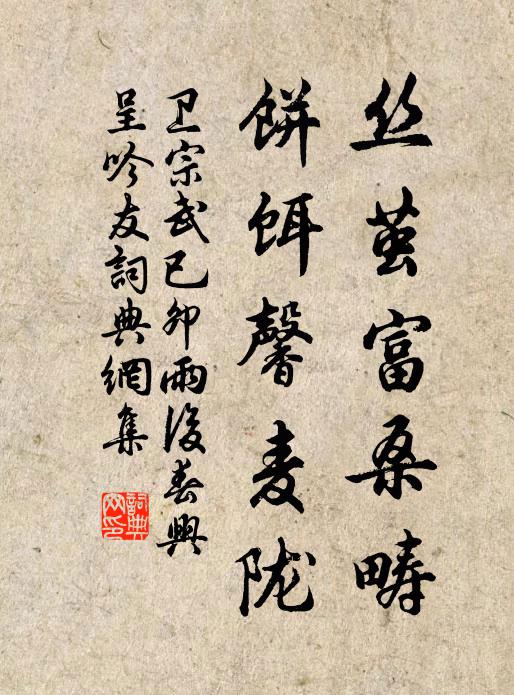 丝茧富桑畴
饼饵馨麦陇
卫宗武己卯雨后春兴
呈吟友词典网集
詞典
网印